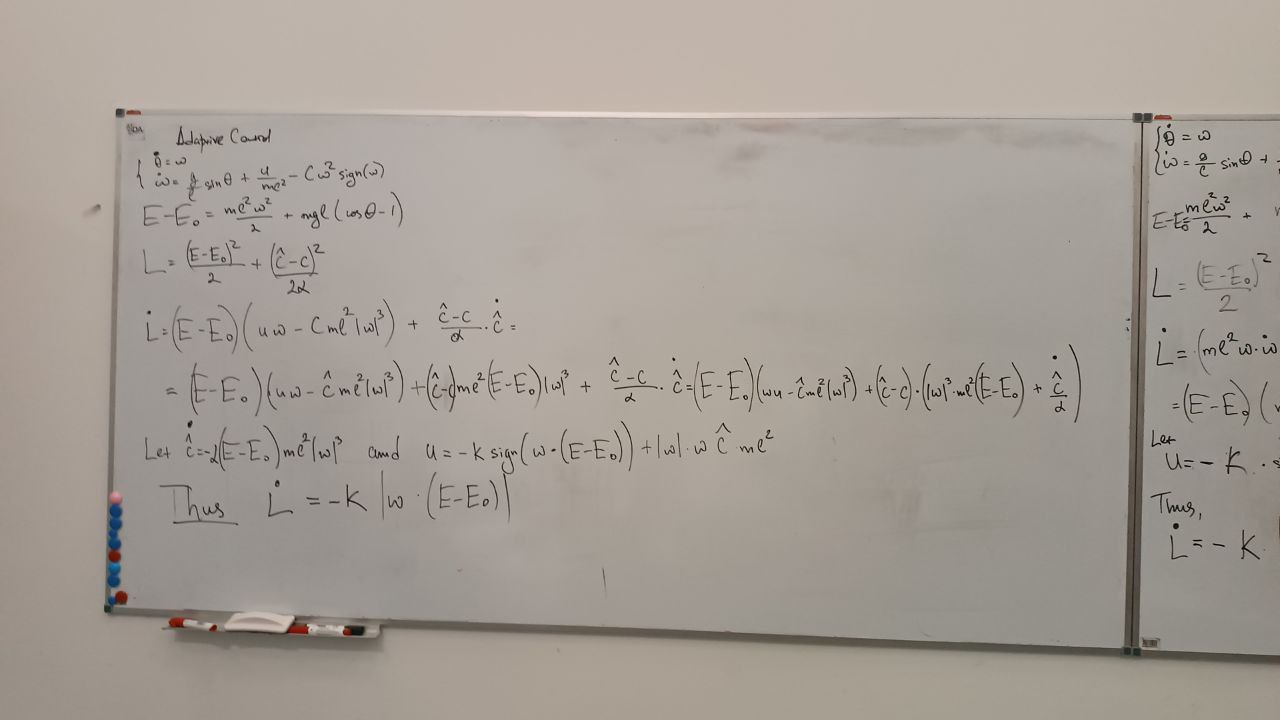 Adaptive Control
{ θ̇ = ω
ω̇ = g/ℓ sinθ + u/mℓ² − Cω² sign(ω)
E−E₀ = mℓ²ω²/2 + mgℓ(cosθ−1)
L = (E−E₀)²/2 + (ĉ−c)²/2α
L̇ = (E−E₀)(uω − Cmℓ²|ω|³) + ĉ−c/α · ĉ̇ =
= (E−E₀)(uω − ĉmℓ²|ω|³) + (ĉ−c)mℓ²(E−E₀)|ω|³ + ĉ−c/α · ĉ̇ = (E−E₀)(ωu − ĉmℓ²|ω|³) + (ĉ−c)·(|ω|³·mℓ²(E−E₀) + ĉ̇/α)
Let ĉ̇ = −α(E−E₀)mℓ²|ω|³ and u = −k sign(ω·(E−E₀)) + |ω|·ω ĉ mℓ²
Thus L̇ = −K |ω · (E−E₀)|
{ θ̇ = ω
ω̇ = g/ℓ sinθ +
E−E₀ = mℓ²ω²/2 +
L = (E−E₀)²/2
L̇ = (mℓ²ω·ω̇
= (E−E₀)(
Let
u = − K ·
Thus,
L̇ = − K